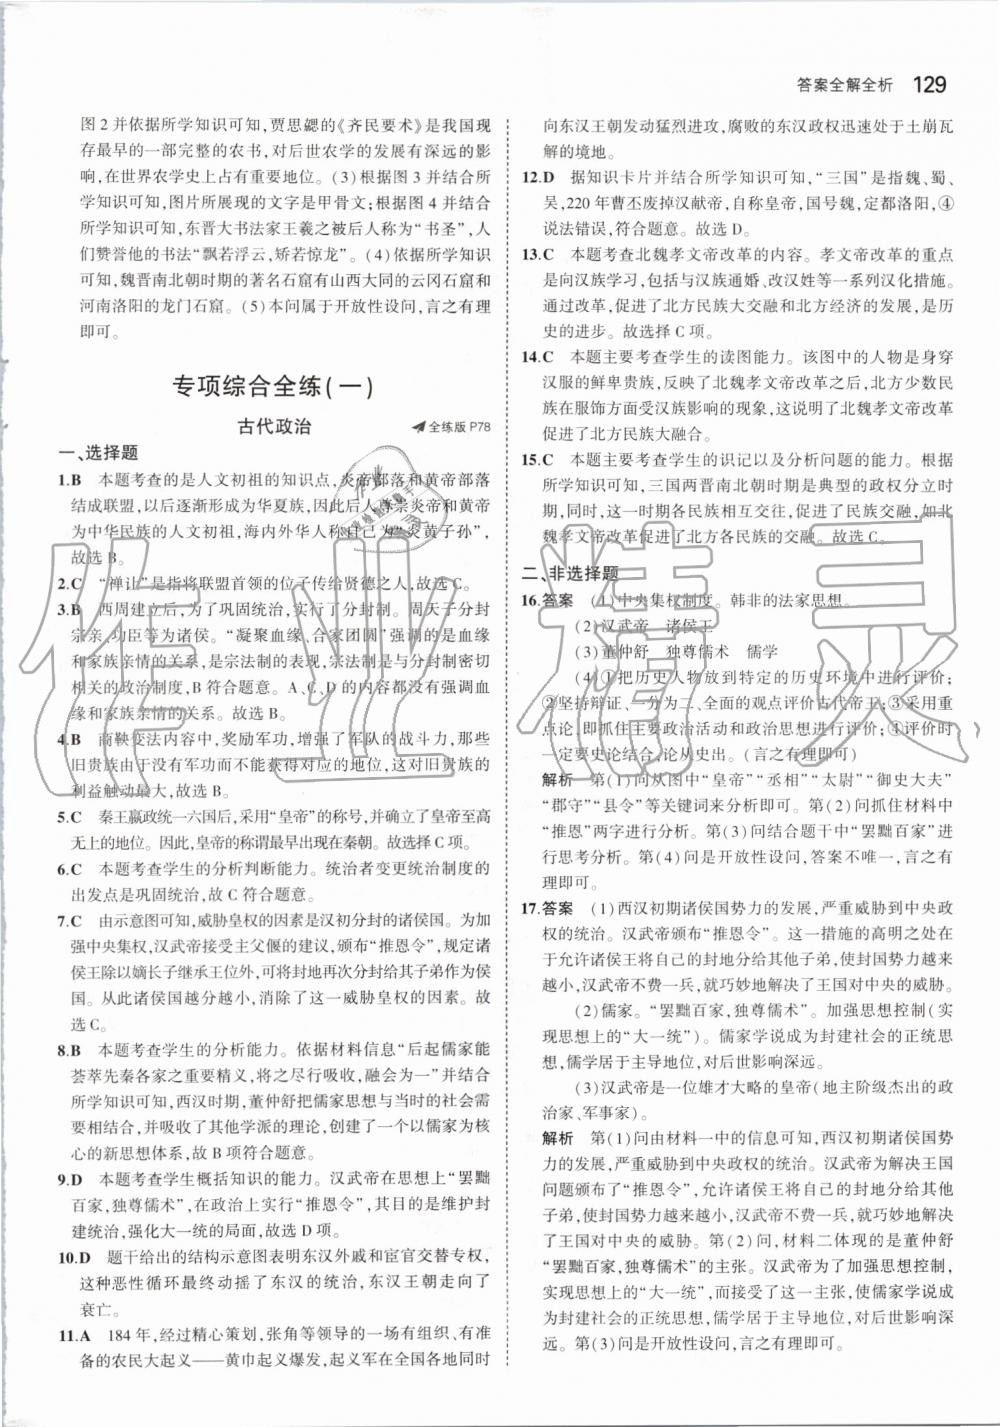 答案全解全析 129
图2并依据所学知识可知,贾思勰的《齐民要术》是我国现
存最早的一部完整的农书,对后世农学的发展有深远的影
响,在世界农学史上占有重要地位。(3)根据图3并结合所
学知识可知,图片所展现的文字是甲骨文;根据图4并结合
所学知识可知,东晋大书法家王羲之被后人称为“书圣”,人
们赞誉他的书法“飘若浮云,矫若惊龙”。(4)依据所学知识
可知,北魏晋南北朝时期的著名石窟有山西大同的云冈石窟和
河南洛阳的龙门石窟。(5)本问属于开放性设问,言之有理
即可。
专项综合全练(一)
古代政治 全练版P78
一、选择题
1.B 本题考查的是人文初祖的知识点,炎帝部落和黄帝部落
结成联盟,以后逐渐形成为华夏族,因此后人尊崇炎帝和黄帝
为中华民族的人文初祖,海内外华人称自己为“炎黄子孙”,
故选B。
2.C “禅让”是指将联盟首领的位子传给贤德之人,故选C。
3.B 西周建立后,为了巩固统治,实行了分封制。周天子分封
宗亲、功臣等为诸侯。“凝聚血缘、合家团圆”强调的是血缘
和家族亲情的关系,是宗法制的表现,宗法制是与分封制密切
相关的政治制度,B符合题意。A、C、D都没有强调血
缘和家族亲情的关系。故选B。
4.B 商鞅变法内容中,奖励军功,增强了军队的战斗力,那些
旧贵族由于没有军功而不能获得对应的地位,这对旧贵族的
利益触动最大,故选B。
5.C 秦王嬴政统一六国后,采用“皇帝”的称号,并确立了皇帝至高
无上的地位。由此可知,皇帝的称谓最早出现在秦朝。故选择C项。
6.C 本题考查学生的分析判断能力。统治者变更统治制度的
出发点是巩固统治,故C符合题意。
7.C 由示意图可知,威胁皇权的因素是汉初分封的诸侯国。为加
强中央集权,汉武帝接受主父偃的建议,颁布“推恩令”,规定诸
侯王除以嫡长子继承王位外,可将封地再次分封给子弟作为侯
国。从此诸侯国越分越小,消除了这一威胁皇权的因素。故
选C。
8.B 本题考查学生的分析能力。依据材料信息“后起儒家能
荟萃先秦各家之重要精义,将之尽行吸收,融会为一”并结合
所学知识可知,西汉时期,董仲舒把儒家思想与当时的社会需
要相结合,并吸收了其他学派的理论,创建了一个以儒家为核
心的新思想体系,故B项符合题意。
9.D 本题考查学生概括知识的能力。汉武帝在思想上“罢黜
百家,独尊儒术”,在政治上实行“推恩令”,其目的是维护封
建统治,强化大一统的局面,故选D项。
10.D 题干给出的结构示意图表明东汉外戚和宦官交替专权,
这种恶性循环最终动摇了东汉的统治,东汉王朝走向了
衰亡。
11.A 184年,经过精心策划,张角等领导的一场有组织、有准
备的农民大起义——黄巾起义爆发,起义军在全国各地同时
向东汉王朝发动猛烈进攻,腐败的东汉政权迅速处于土崩瓦
解的境地。
12.D 据知识卡片并结合所学知识可知,“三国”是指魏、蜀、
吴,220年曹丕废掉汉献帝,自称皇帝,国号魏,定都洛阳,④
说法错误,符合题意。故选D。
13.C 本题考查北魏孝文帝改革的内容。孝文帝改革的重点
是向汉族学习,包括与汉族通婚、改汉姓等一系列汉化措施。
通过改革,促进了北方民族大交融和北方经济的发展,是历
史的进步。故选择C项。
14.C 本题主要考查学生的读图能力。该图中的人物是身穿
汉服的鲜卑贵族,反映了北魏孝文帝改革之后,北方少数民
族在服饰方面受汉族影响的现象,这说明了北魏孝文帝改革
促进了北方民族大融合。
15.C 本题主要考查学生的识记以及分析问题的能力。根据
所学知识可知,三国两晋南北朝时期是典型的政权分立时
期,同时,这一时期各民族相互交往,促进了民族交融,如北
魏孝文帝改革促进了北方各民族的交融。故选C。
二、非选择题
16.答案 (1)中央集权制度。韩非的法家思想。
(2)汉武帝 诸侯王
(3)董仲舒 独尊儒术 儒学
(4)①把历史人物放到特定的历史环境中进行评价;
②坚持辩证、一分为二、全面的观点评价古代帝王;③采用重
点论,即抓住主要政治活动和政治思想进行评价;④评价时
一定要史论结合,论从史出。(言之有理即可)
解析 第(1)问从图中“皇帝”“丞相”“太尉”“御史大夫”
“郡守”“县令”等关键词来分析即可。第(2)问抓住材料中
“推恩”两字进行分析。第(3)问结合题干中“罢黜百家”进
行思考分析。第(4)问是开放性设问,答案不唯一,言之有
理即可。
17.答案 (1)西汉初期诸侯国势力的发展,严重威胁到中央政
权的统治。汉武帝颁布“推恩令”。这一措施的高明之处在
于允许诸侯王将自己的封地分给其他子弟,使封地越来越
小,汉武帝不费一兵一卒,就巧妙地解决了王国对中央的威胁。
(2)儒家。“罢黜百家,独尊儒术”。加强思想控制(实
现思想上的“大一统”)。儒家学说成为封建社会的正统思
想,儒学居于主导地位,对后世影响深远。
(3)汉武帝是一位雄才大略的皇帝(地主阶级杰出的政
治家、军事家)。
解析 第(1)问由材料一中的信息可知,西汉初期诸侯国势
力的发展,严重威胁到中央政权的统治。汉武帝为解决王国
问题颁布了“推恩令”,允许诸侯王将自己的封地分给其他
子弟,使封地越来越小,汉武帝不费一兵一卒,就巧妙地解决
了王国对中央的威胁。第(2)问,材料二体现的是董仲舒
“罢黜百家,独尊儒术”的主张。汉武帝为了加强思想控制,
实现思想上的“大一统”,而接受了这一主张,使儒家学说成
为封建社会的正统思想,儒学居于主导地位,对后世影响深
远。第(3)问是开放性设问,言之有理即可。
作业精灵